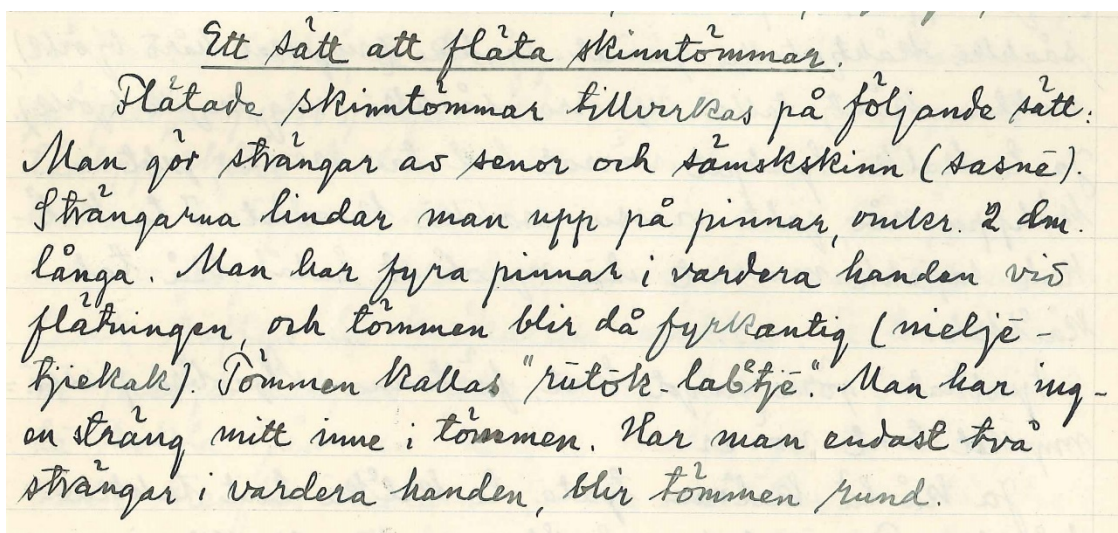 Ett sätt att fläta skinntömmar.
Flätade skinntömmar tillverkas på följande sätt:
Man gör strängar av senor och sämskskinn (sasnē).
Strängarna lindar man upp på pinnar, omkr. 2 dm.
långa. Man har fyra pinnar i vardera handen vid
flätningen, och tömmen blir då fyrkantig (nieljē-
tjiekak). Tömmen kallas "rūtōk-labᵉtjē". Man har ing-
en sträng mitt inne i tömmen. Har man endast två
strängar i vardera handen, blir tömmen rund.